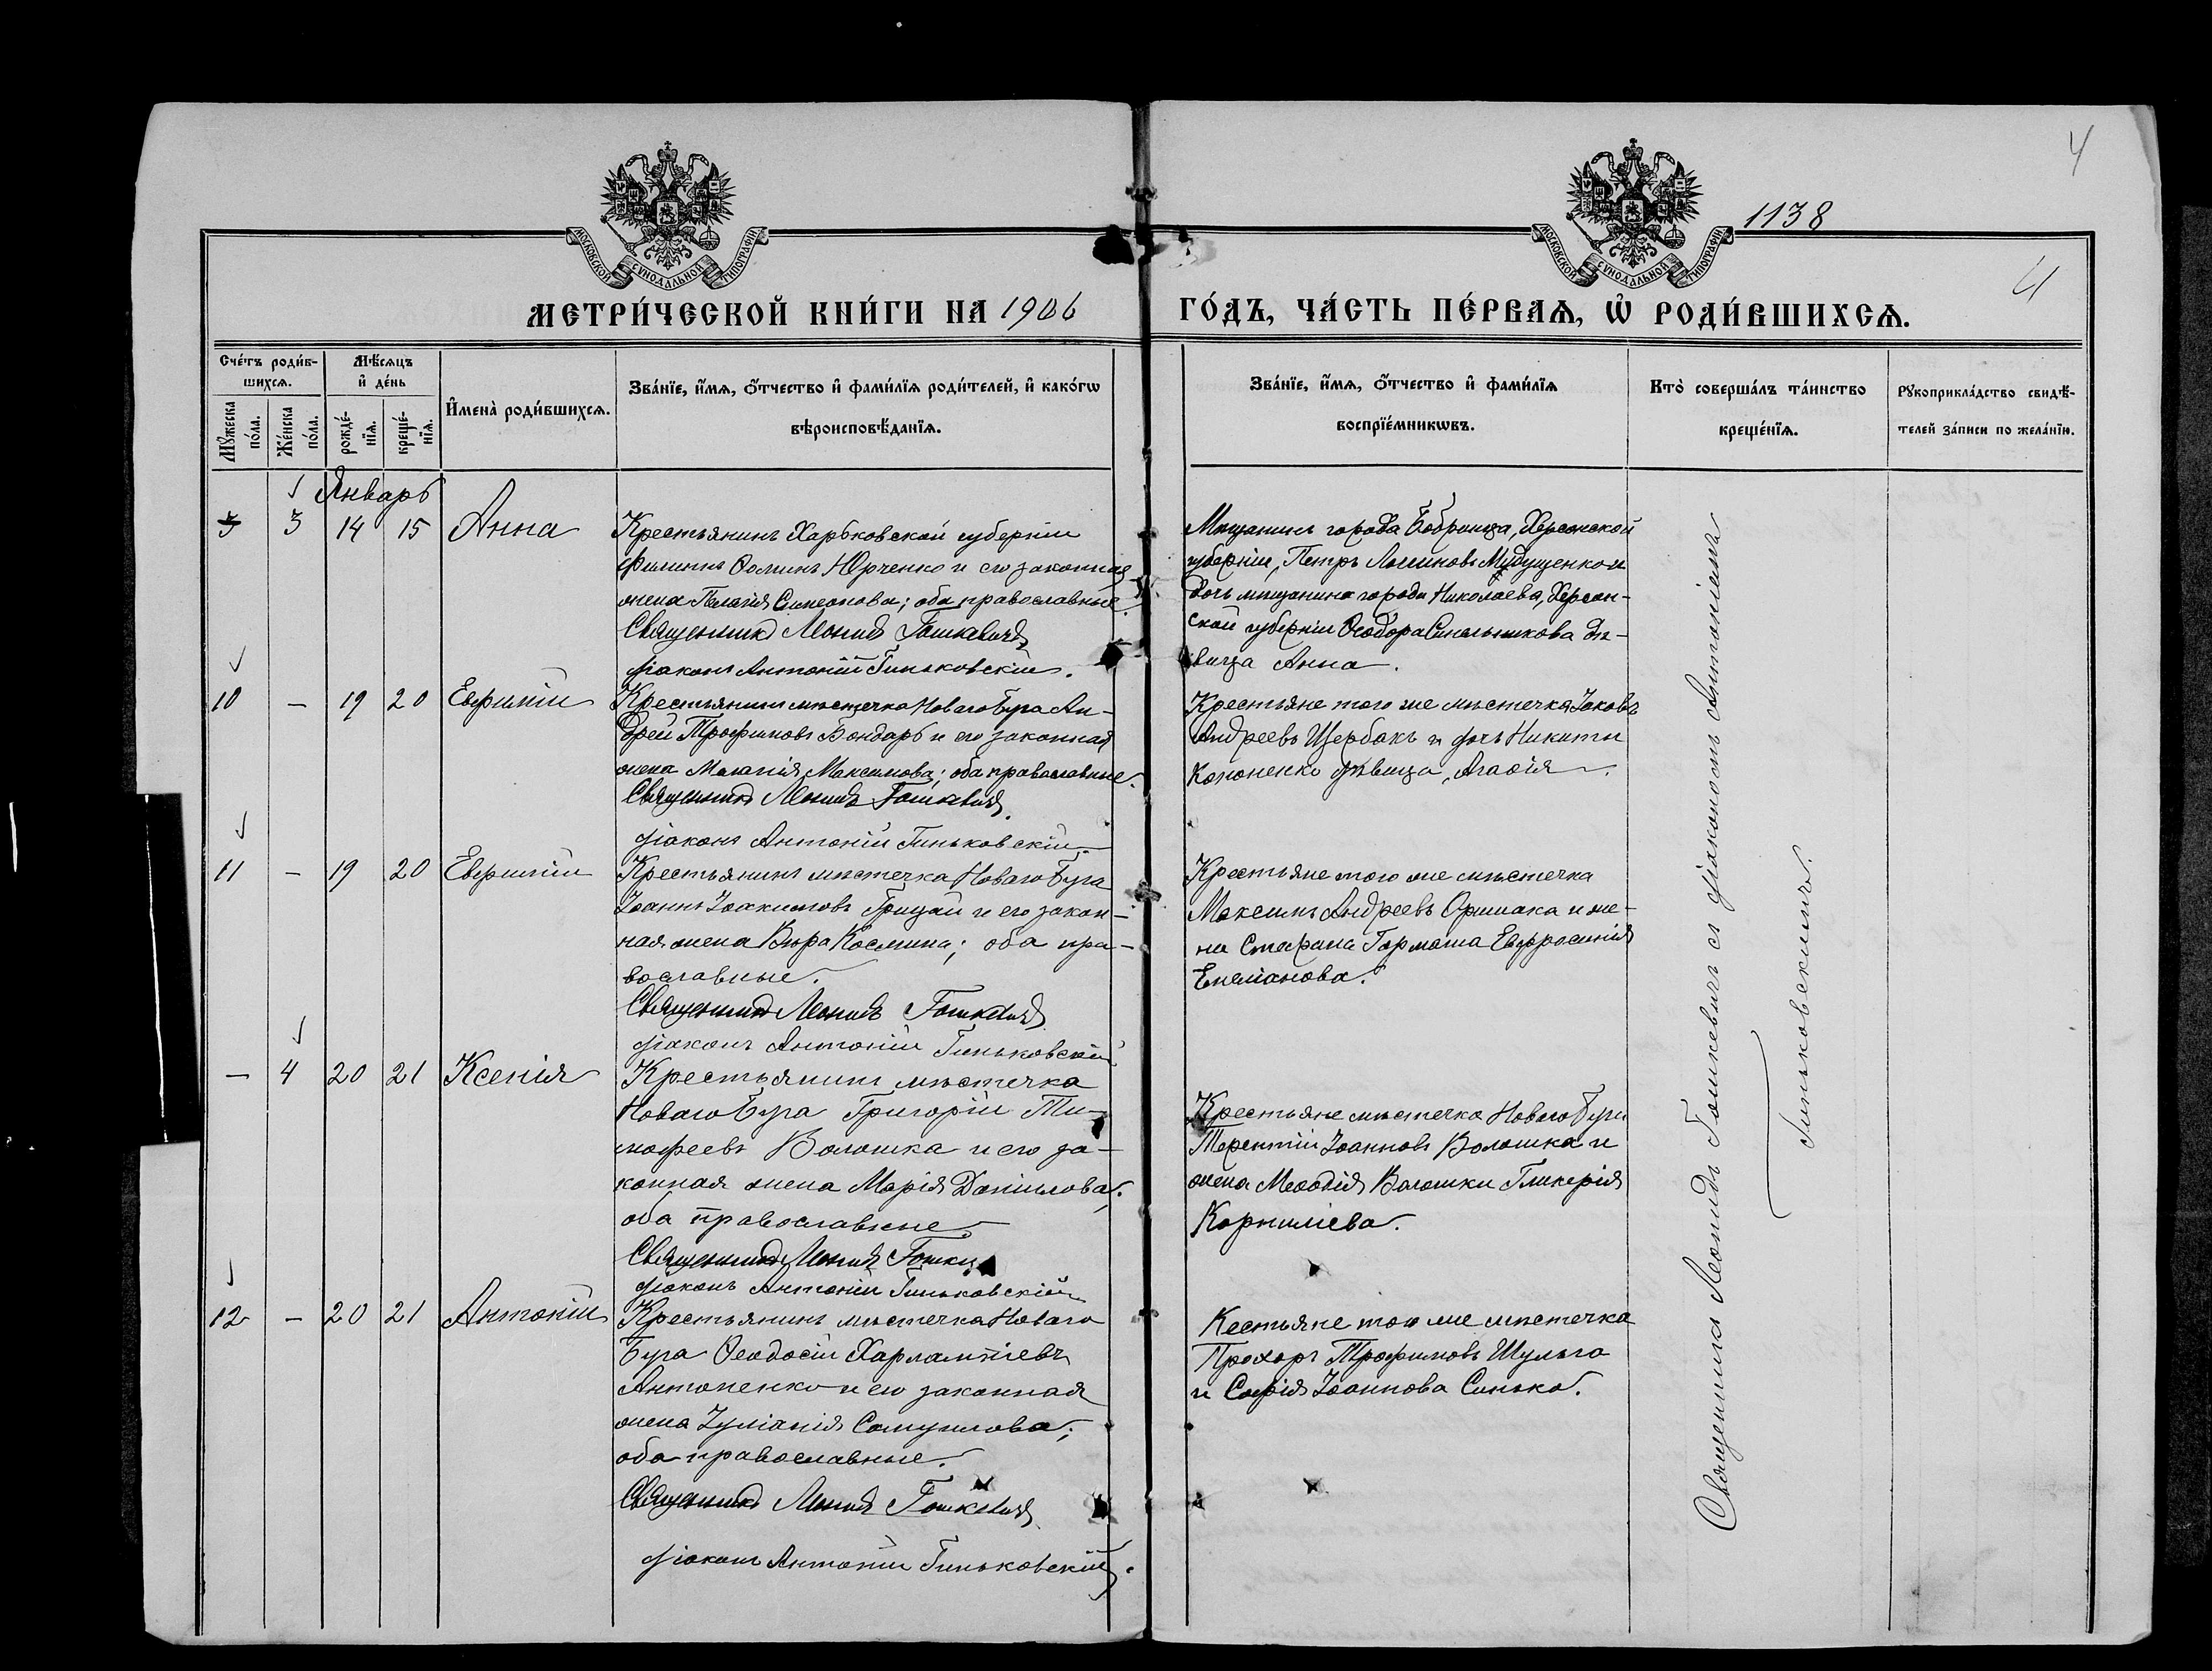 4
1138
4
МОСКОВСКОЙ СѴНОДАЛЬНОЙ ТИПОГРАФІИ
МОСКОВСКОЙ СѴНОДАЛЬНОЙ ТИПОГРАФІИ
МЕТРИ́ЧЕСКОЙ КНИ́ГИ НА 1906 ГО́ДЪ, ЧА́СТЬ ПЕ́РВАѦ, Ѡ҆ РОДИ́ВШИХСѦ.
Сче́тъ роди́в-
шихсѧ.
Мѣ́сѧцъ
и҆ де́нь
Мꙋ́жеска по́ла.
Же́нска по́ла.
рожде́-
нїѧ.
креще́-
нїѧ.
И҆мена̀ роди́вшихсѧ.
Зва́нїе, и҆́мѧ, ѻ҆́тчество и҆ фами́лїѧ роди́телей, и҆ како́гѡ
вѣроисповѣ́данїѧ.
Зва́нїе, и҆́мѧ, ѻ҆́тчество и҆ фами́лїѧ
воспрїе́мникѡвъ.
Кто̀ соверша́лъ та́инство
креще́нїѧ.
Рꙋкоприкла́дство свидѣ́-
телей за́писи по жела́нїю.
Январь
3 14 15 Анна
Крестьянинъ Харьковской губерніи
Филиппъ Ѳоминъ Юрченко и его законная
жена Пелагія Симеонова; оба православные
Священникъ Леонидъ Гошкевичъ
діаконъ Антоній Гиньковскій.
Мѣщанинъ города Бобринца, Херсонской
губерніи, Петръ и
дочь мѣщанина города Николаева, Херсон-
ской губерніи Ѳеодора Синельникова дѣ-
вица Анна.
10 – 19 20 Евфимій
Крестьянинъ мѣстечка Новаго Буга Ан-
дрей Трофимовъ Бондарь и его законная
жена Меланія Максимова; оба православные.
Священникъ Леонидъ Гошкевичъ.
діаконъ Антоній Гиньковскій
Крестьяне того же мѣстечка Іаковъ
Андреевъ Щербакъ и дочь Никиты
Кононенко дѣвица Агаѳія.
11 – 19 20 Евфимій
Крестьянинъ мѣстечка Новаго Буга
Іоаннъ Іоакимовъ Грицай и его закон-
ная жена Вѣра Космина; оба пра-
вославные.
Священникъ Леонидъ Гошкевичъ
діаконъ Антоній Гиньковскій
Крестьяне того же мѣстечка
Максимъ Андреевъ и же-
на Стефана Гармаша Евфросинія
Емеліанова.
– 4 20 21 Ксенія
Крестьянинъ мѣстечка
Новаго Буга Григорій Ти-
мофеевъ Волошка и его за-
конная жена Марія Даніилова;
оба православные
Священникъ Леонидъ
діаконъ Антоній Гиньковскій
Крестьяне мѣстечка Новаго Буга
Терентій Іоанновъ Волошка и
жена Меѳодія Волошки Гликерія
Корниліева.
12 – 20 21 Антоній
Крестьянинъ мѣстечка Новаго
Буга Ѳеодосій Харлампіевъ
Антоненко и его законная
жена Іуліанія Самуилова;
оба православные.
Священникъ Леонидъ Гошкевичъ
діаконъ Антоній Гиньковскій.
Кестьяне того же мѣстечка
Прохоръ Трофимовъ Шульга
и Софія Іоаннова Синько.
Священникъ Леонидъ Гошкевичъ съ діакономъ Антоніемъ
Гиньковскимъ.